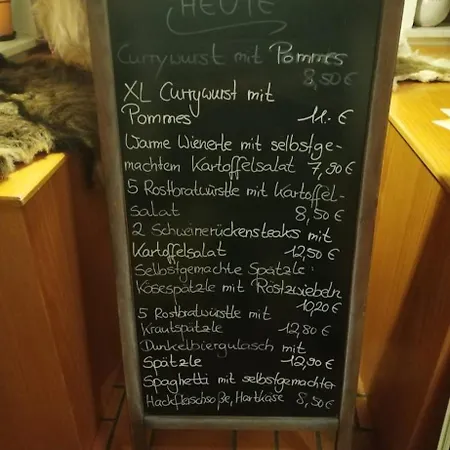 HEUTE
Currywurst mit Pommes
8,50€
XL Currywurst mit
Pommes 11.- €
Warme Wienerle mit selbstge-
machtem Kartoffelsalat 7,90€
5 Rostbratwürstle mit Kartoffel-
salat 8,50€
2 Schweinerückensteaks mit
Kartoffelsalat 12,50€
Selbstgemachte Spätzle:
Käsespätzle mit Röstzwiebeln
10,20€
5 Rostbratwürstle mit
Krautspätzle 12,80€
Dunkelbiergulasch mit
Spätzle 12,90€
Spaghetti mit selbstgemachter
Hackfleischsoße, Hartkäse 8,50€